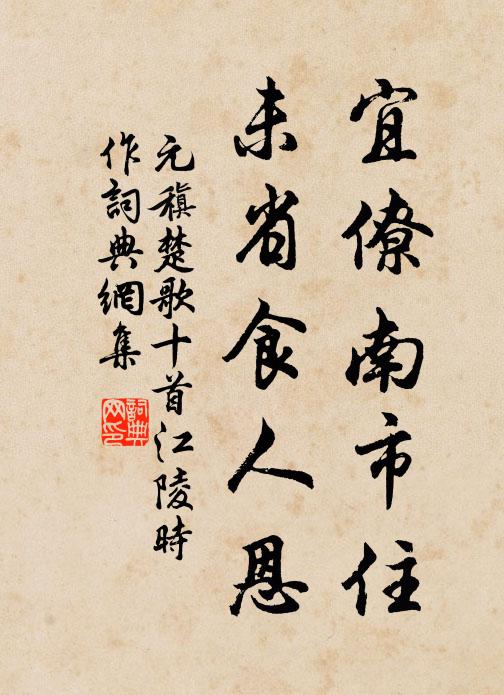 宜僚南市住
未省食人恩
元稹楚歌十首江陵時
作詞典網集
詞典网印